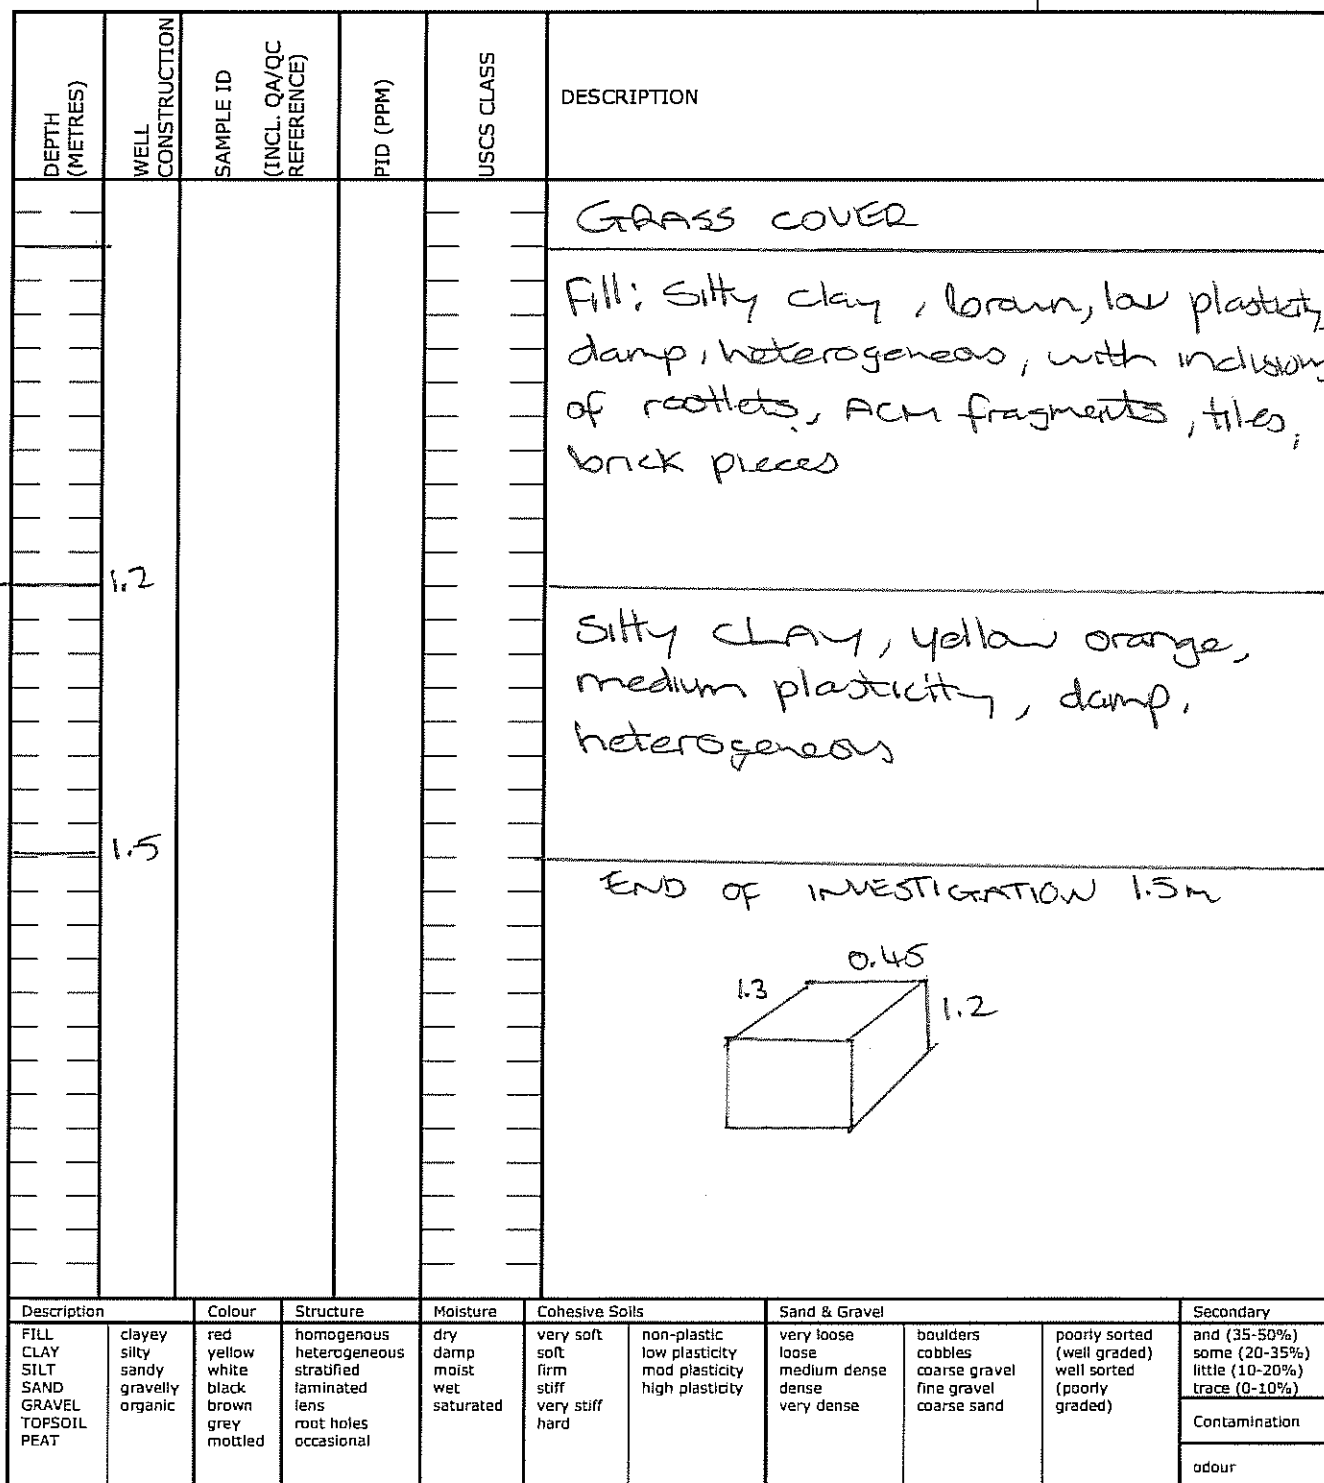 DEPTH
(METRES)
WELL
CONSTRUCTION
SAMPLE ID
(INCL. QA/QC
REFERENCE)
PID (PPM)
USCS CLASS
DESCRIPTION
GRASS COVER
Fill: Silty clay, brown, low plasticity,
damp, heterogeneous, with inclusions
of rootlets, ACM fragments, tiles,
brick pieces
1.2
Silty CLAY, yellow orange,
medium plasticity, damp,
heterogeneous
1.5
END OF INVESTIGATION 1.5m
0.45
1.3
1.2
Description
FILL
CLAY
SILT
SAND
GRAVEL
TOPSOIL
PEAT
clayey
silty
sandy
gravelly
organic
Colour
red
yellow
white
black
brown
grey
mottled
Structure
homogenous
heterogeneous
stratified
laminated
lens
root holes
occasional
Moisture
dry
damp
moist
wet
saturated
Cohesive Soils
very soft
soft
firm
stiff
very stiff
hard
non-plastic
low plasticity
mod plasticity
high plasticity
Sand & Gravel
very loose
loose
medium dense
dense
very dense
boulders
cobbles
coarse gravel
fine gravel
coarse sand
poorly sorted
(well graded)
well sorted
(poorly
graded)
Secondary
and (35-50%)
some (20-35%)
little (10-20%)
trace (0-10%)
Contamination
odour